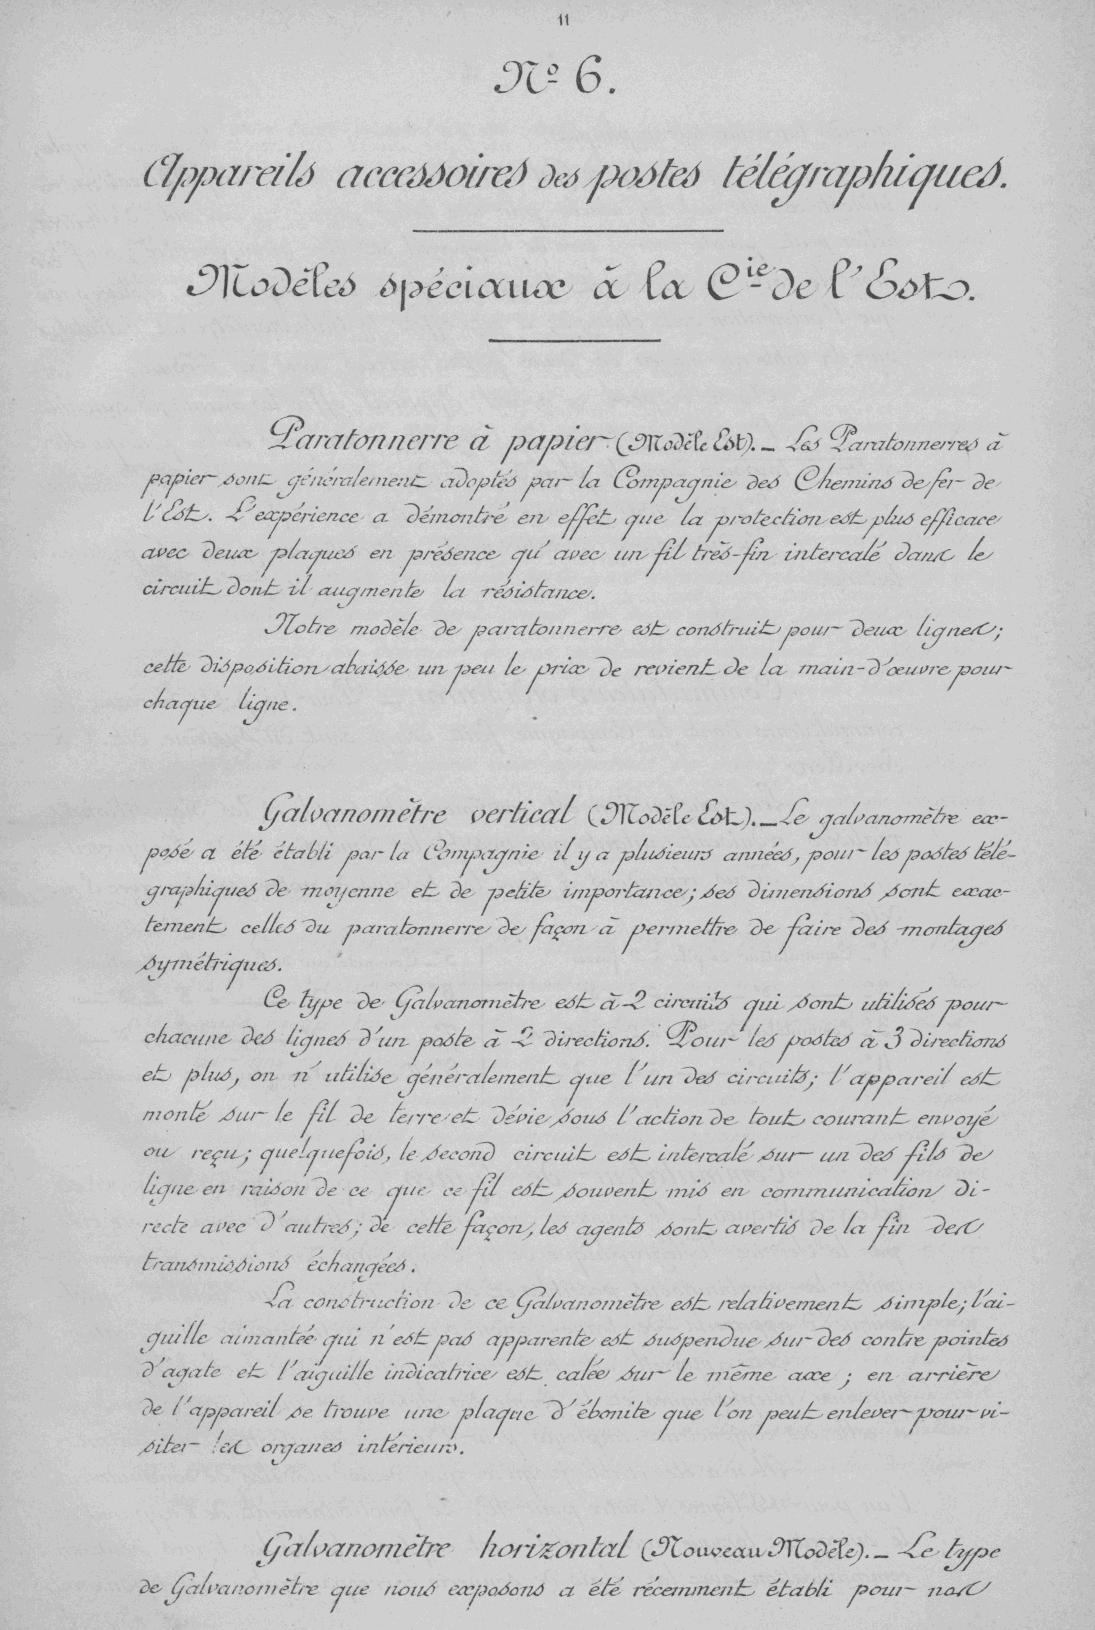 11
Nº 6.
Appareils accessoires des postes télégraphiques.
Modèles spéciaux à la Cie de l'Est.
Paratonnerre à papier (Modèle Est). _ Les Paratonnerres à
papier sont généralement adoptés par la Compagnie des Chemins de fer de
l'Est. L'expérience a démontré en effet que la protection est plus efficace
avec deux plaques en présence qu'avec un fil très-fin intercalé dans le
circuit dont il augmente la résistance.
Notre modèle de paratonnerre est construit pour deux lignes;
cette disposition abaisse un peu le prix de revient de la main-d'œuvre pour
chaque ligne.
Galvanomètre vertical (Modèle Est). _ Le galvanomètre ex-
posé a été établi par la Compagnie il y a plusieurs années, pour les postes télé-
graphiques de moyenne et de petite importance; ses dimensions sont exac-
tement celles du paratonnerre de façon à permettre de faire des montages
symétriques.
Ce type de Galvanomètre est à 2 circuits qui sont utilisés pour
chacune des lignes d'un poste à 2 directions. Pour les postes à 3 directions
et plus, on n'utilise généralement que l'un des circuits; l'appareil est
monté sur le fil de terre et dévie sous l'action de tout courant envoyé
ou reçu; quelquefois, le second circuit est intercalé sur un des fils de
ligne en raison de ce que ce fil est souvent mis en communication di-
recte avec d'autres; de cette façon, les agents sont avertis de la fin des
transmissions échangées.
La construction de ce Galvanomètre est relativement simple; l'ai-
guille aimantée qui n'est pas apparente est suspendue sur des contre pointes
d'agate et l'aiguille indicatrice est calée sur le même axe; en arrière
de l'appareil se trouve une plaque d'ébonite que l'on peut enlever pour vi-
siter les organes intérieurs.
Galvanomètre horizontal (Nouveau Modèle). _ Le type
de Galvanomètre que nous exposons a été récemment établi pour nos